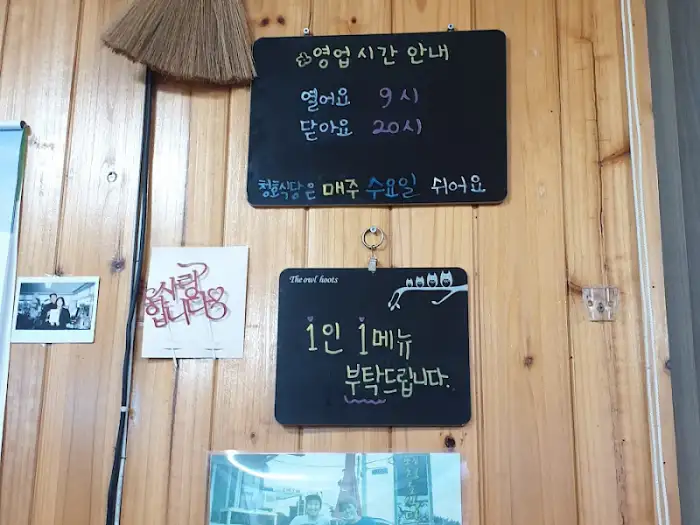 영업시간 안내
열어요 9시
닫아요 20시
청호식당은 매주 수요일 쉬어요
사랑
합니다
The owl hoots
1인 1메뉴
부탁드립니다.